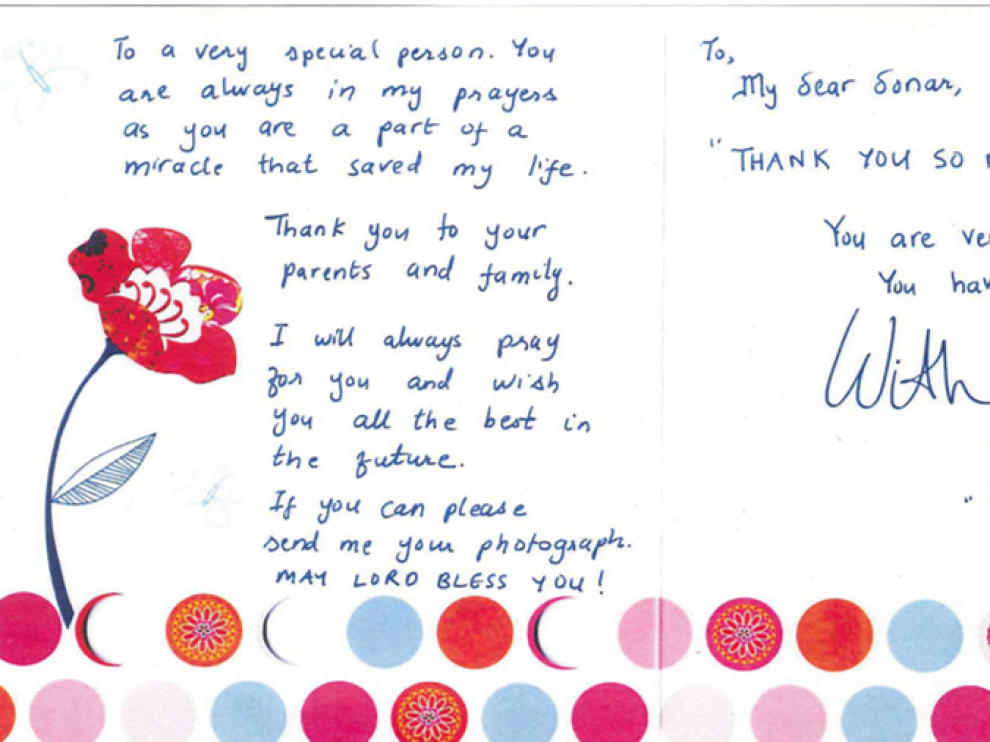 To a very special person. You
are always in my prayers
as you are a part of a
miracle that saved my life.
Thank you to your
parents and family.
I will always pray
for you and wish
you all the best in
the future.
If you can please
send me your photograph.
MAY LORD BLESS YOU!
To,
My dear donar,
"THANK YOU SO
You are
You
With